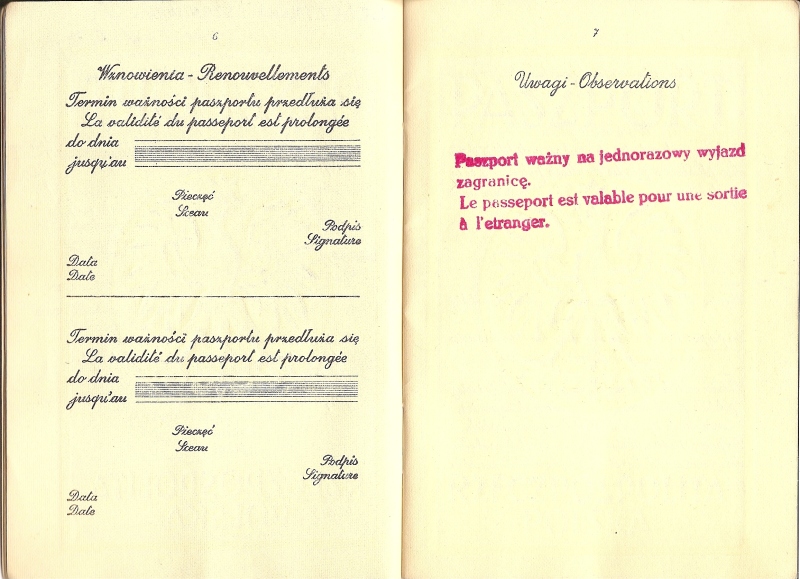 6
Wznowienia - Renouvellements
Termin ważności paszportu przedłuża się
La validité du passeport est prolongée
do dnia
jusqu'au
Pieczęć
Sceau
Podpis
Signature
Data
Date
Termin ważności paszportu przedłuża się
La validité du passeport est prolongée
do dnia
jusqu'au
Pieczęć
Sceau
Podpis
Signature
Data
Date
7
Uwagi - Observations
Paszport ważny na jednorazowy wyjazd
zagranicę.
Le passeport est valable pour une sortie
à l'etranger.